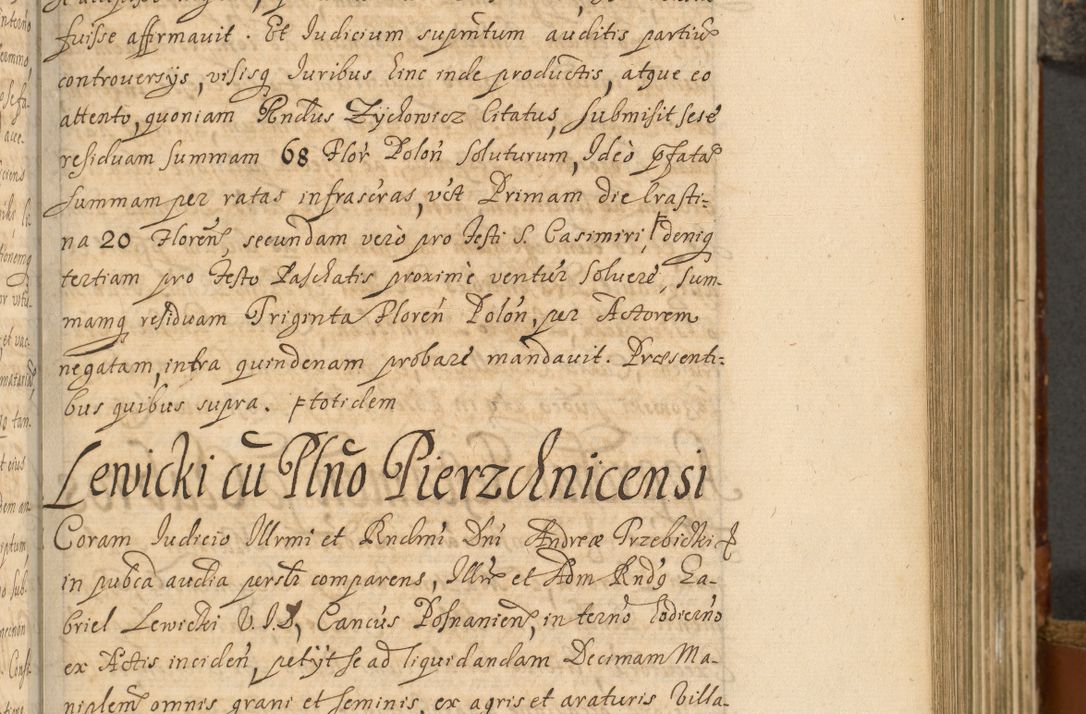 fuisse affirmavit. Et Iudicium suprñtum auditis partiũ
controversijs, visisq Iuribus hinc inde productis, atque eo
attento, quoniam Rndus Zychowicz Citatus, submisit sese
residuam summam 68 Flor Polon soluturum, Ideò pfatã
summam per ratas infrascras, vet Primam die Crasti:
na 20 Floren, secundam verò pro festi S. Casimiri, denig
tertiam pro festo Paschatis proximè ventur solvere, sum
mamq residuam Triginta Floren Polon, per Actorem
negatam, infra quindenam probare mandavit. Præsenti:
bus quibus supra. ptotidem
Lewicki cũ Plño Pierzchnicensi
Coram Iudicio Illrmi et Rndmi Dni Andreæ Trzebicki
in pubca audia perstr comparens, Illris et Adm Rndg Ga-
briel Lewicki V.I.D, Cancus Posnanien, in terño hodierño
ex Actis inciden, petijt se ad liquidandam Decimam Ma-
nialem omnis grani et seminis, ex agris et araturis Villa-